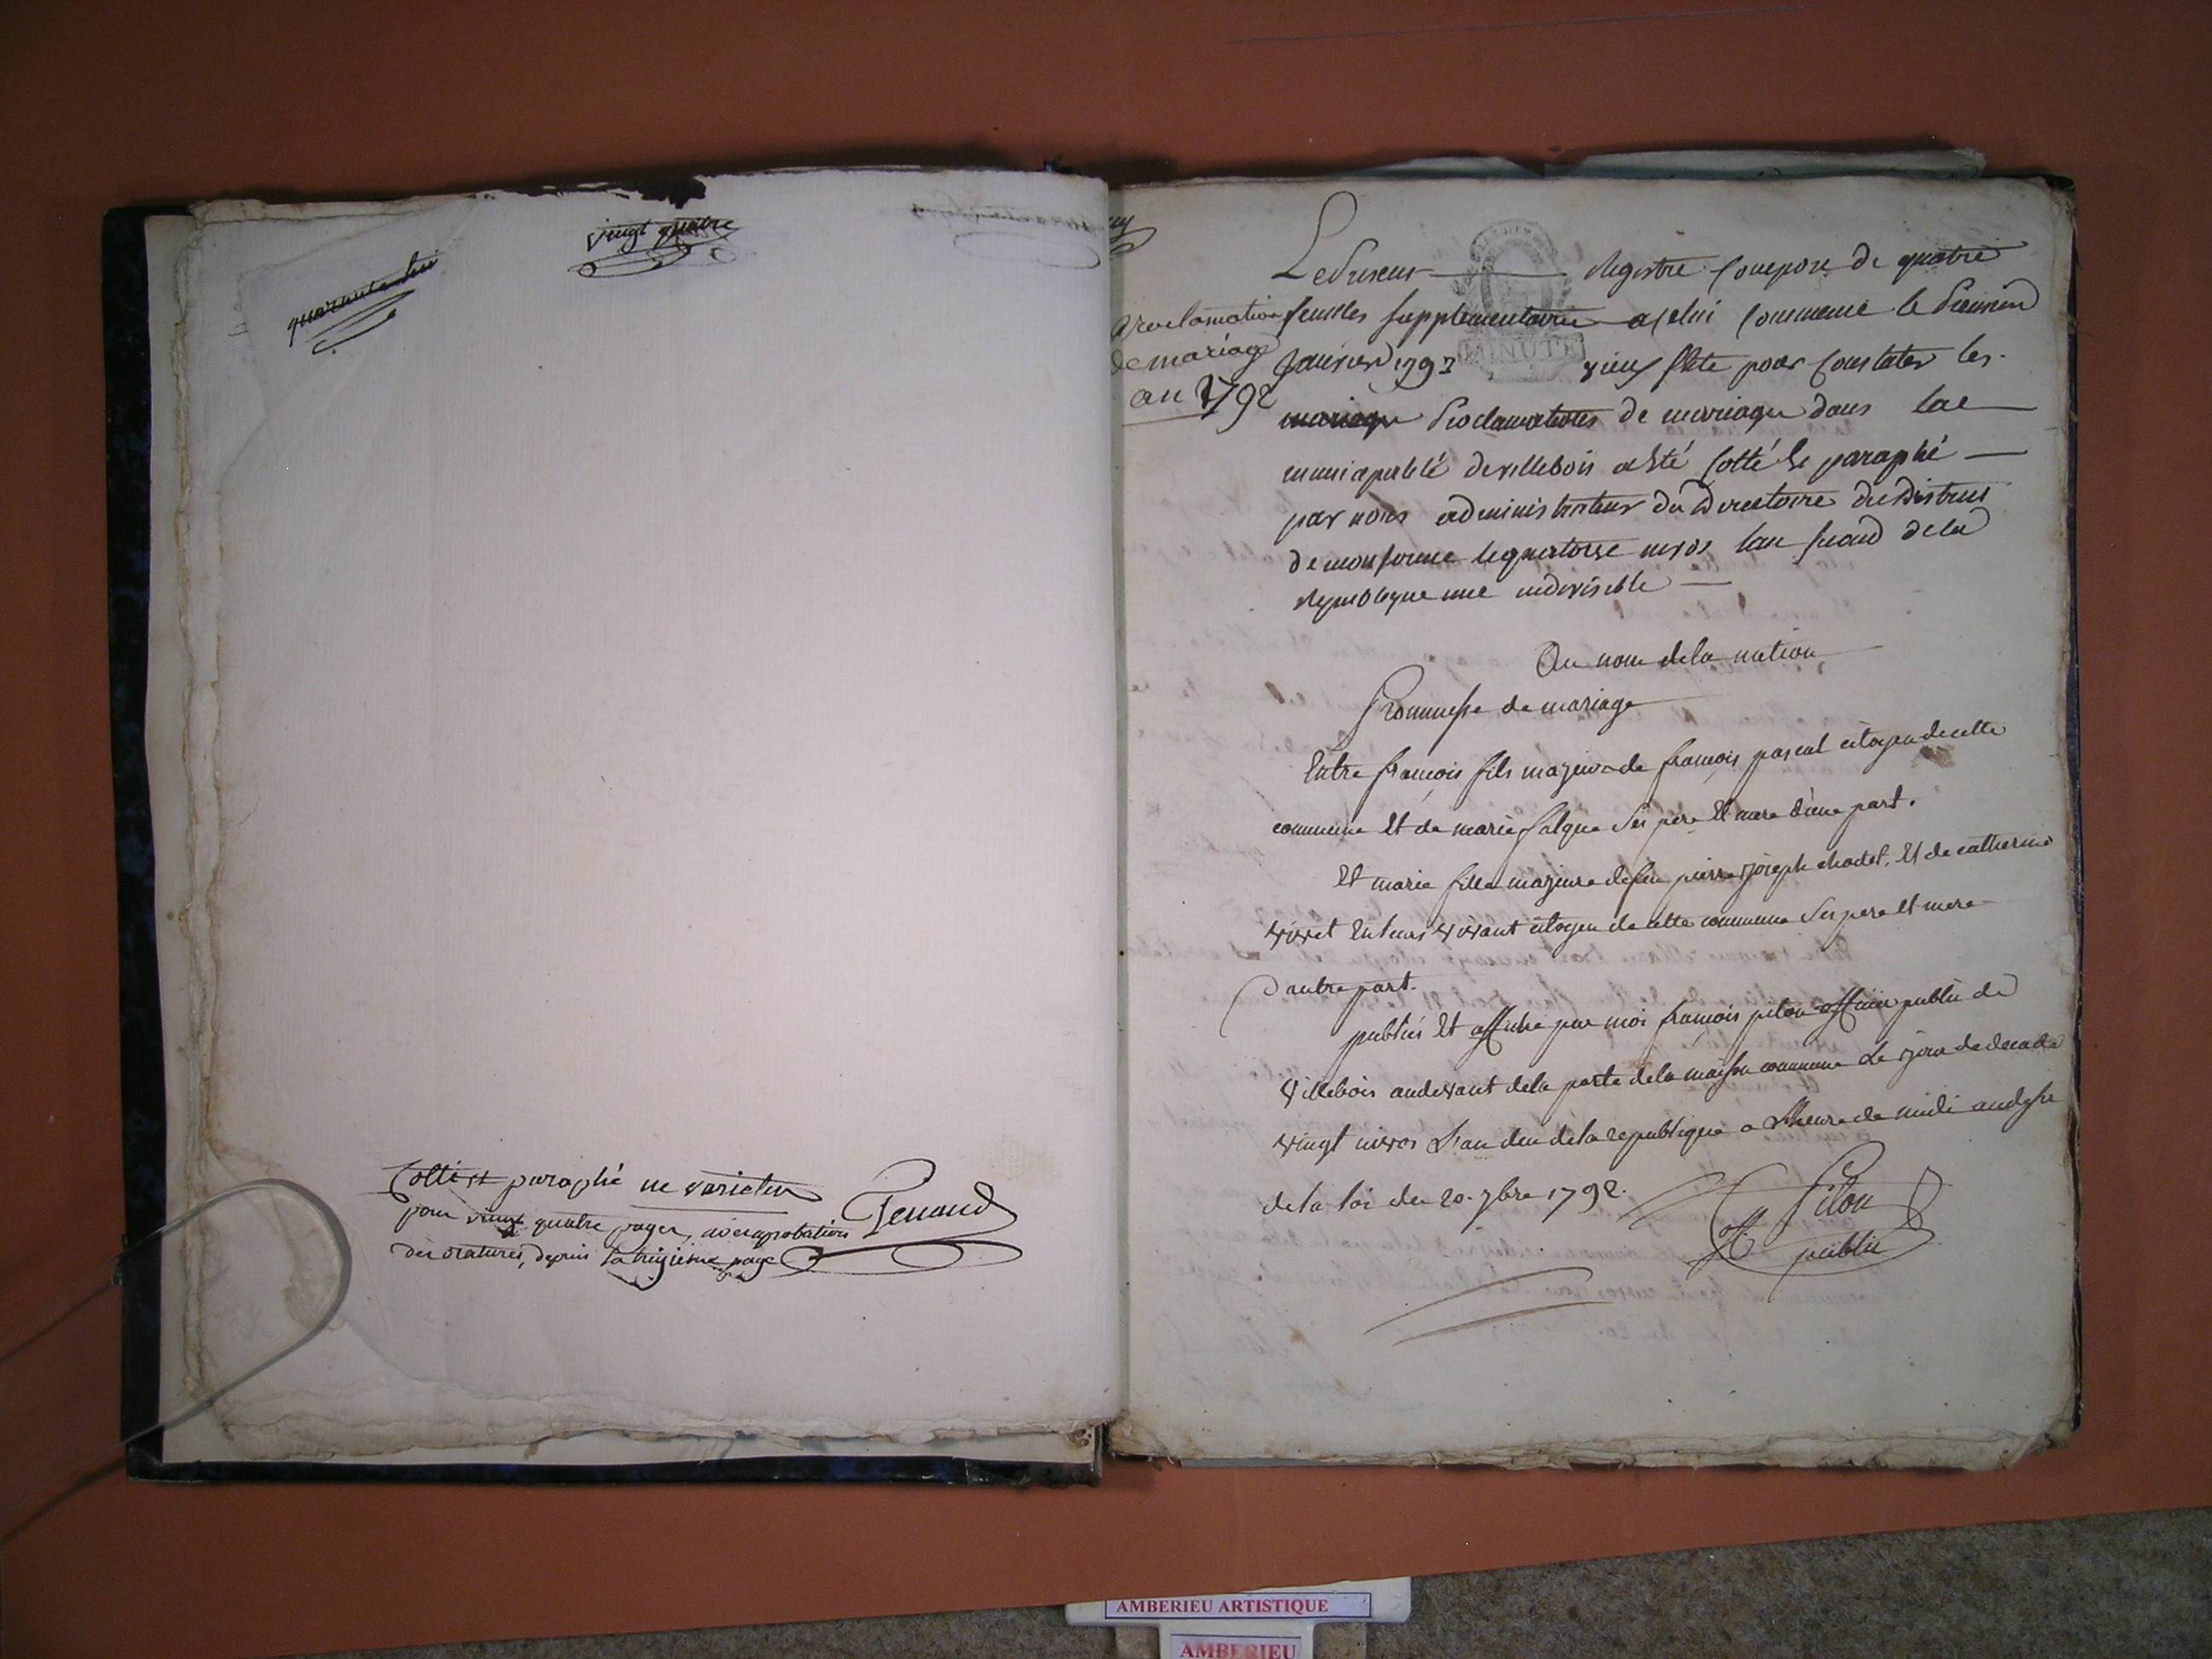 vingt quatre
Cotté et paraphé ne varietur
pour vingt quatre pages, avec aprobation
des ratures, depuis la page
Proclamation
de mariage
an 1792
Le présent Registre composé de quatre
feuilles supplementaire a celui commencé le premier
MINUTE
janvier 1793 vieux stile pour constater les
mariage proclamations de mariage dans la
municipalité de villebois a été cotté et paraphé
par nous administrateur du Directoire du District
de monferme le quatorze nivos l'an second de la
Republique une indivisible
Au nom de la nation
Promesse de mariage
Entre françois fils majeur de françois pascal citoyen de cette
commune et de marie falque ses pere et mere d'une part.
Et marie fille majeure de feu pierre joseph chodet, et de catherine
vivet en leurs vivant citoyen de cette commune ses pere et mere
d'autre part.
publiés et affiché par moi françois pilon officier public de
Villebois au devant de la porte de la maison commune le jour de decade
vingt nivos l'an deu de la republique a l'heure de midi au desir
de la loi du 20. 7bre 1792.
Pilon
off public
AMBERIEU ARTISTIQUE
AMBERIEU